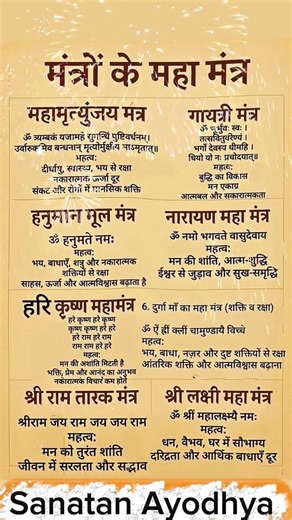 मंत्रों के महा मंत्र
महामृत्युंजय मत्र
ॐ त्र्यम्बकं यजामहे सुगन्धिं पुष्टिवर्धनम्।
उर्वारुकमिव बन्धनान् मृत्योर्मुक्षीय माऽमृतात्॥
महत्व:
दीर्घायु, स्वास्थ्य, भय से रक्षा
नकारात्मक ऊर्जा दूर
संकट और रोगों में मानसिक शक्ति
गायत्री मंत्र
ॐ भूर्भुवः स्वः ।
तत्सवितुर्वरेण्यं ।
भर्गो देवस्य धीमहि ।
धियो यो नः प्रचोदयात्॥
महत्व:
बुद्धि का विकास
मन एकाग्र
आत्मबल और सकारात्मकता
हनुमान मूल मंत्र
ॐ हनुमते नमः
महत्व:
भय, बाधाएँ, शत्रु और नकारात्मक
शक्तियों से रक्षा
साहस, ऊर्जा और आत्मविश्वास बढ़ाता है
नारायण महा मंत्र
ॐ नमो भगवते वासुदेवाय
महत्व:
मन की शांति, आत्म-शुद्धि
ईश्वर से जुड़ाव और सुख-समृद्धि
हरि कृष्ण महामंत्र
हरे कृष्ण हरे कृष्ण
कृष्ण कृष्ण हरे हरे
हरे राम हरे राम
राम राम हरे हरे
महत्व:
मन की अशांति मिटती है
भक्ति, प्रेम और आनंद का अनुभव
नकारात्मक विचार कम होते
6. दुर्गा माँ का महा मंत्र (शक्ति व रक्षा)
ॐ ऐं ह्रीं क्लीं चामुण्डायै विच्चे
महत्व:
भय, बाधा, नज़र और दुष्ट शक्तियों से रक्षा
आंतरिक शक्ति और आत्मविश्वास बढ़ाना
श्री राम तारक मंत्र
श्रीराम जय राम जय जय राम
महत्व:
मन को तुरंत शांति
जीवन में सरलता और सद्भाव
श्री लक्ष्मी महा मंत्र
ॐ श्रीं महालक्ष्म्यै नमः
महत्व:
धन, वैभव, घर में सौभाग्य
दरिद्रता और आर्थिक बाधाएँ दूर
Sanatan Ayodhya